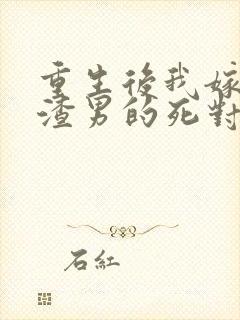 重生後我嫁
渣男的死對
石紅